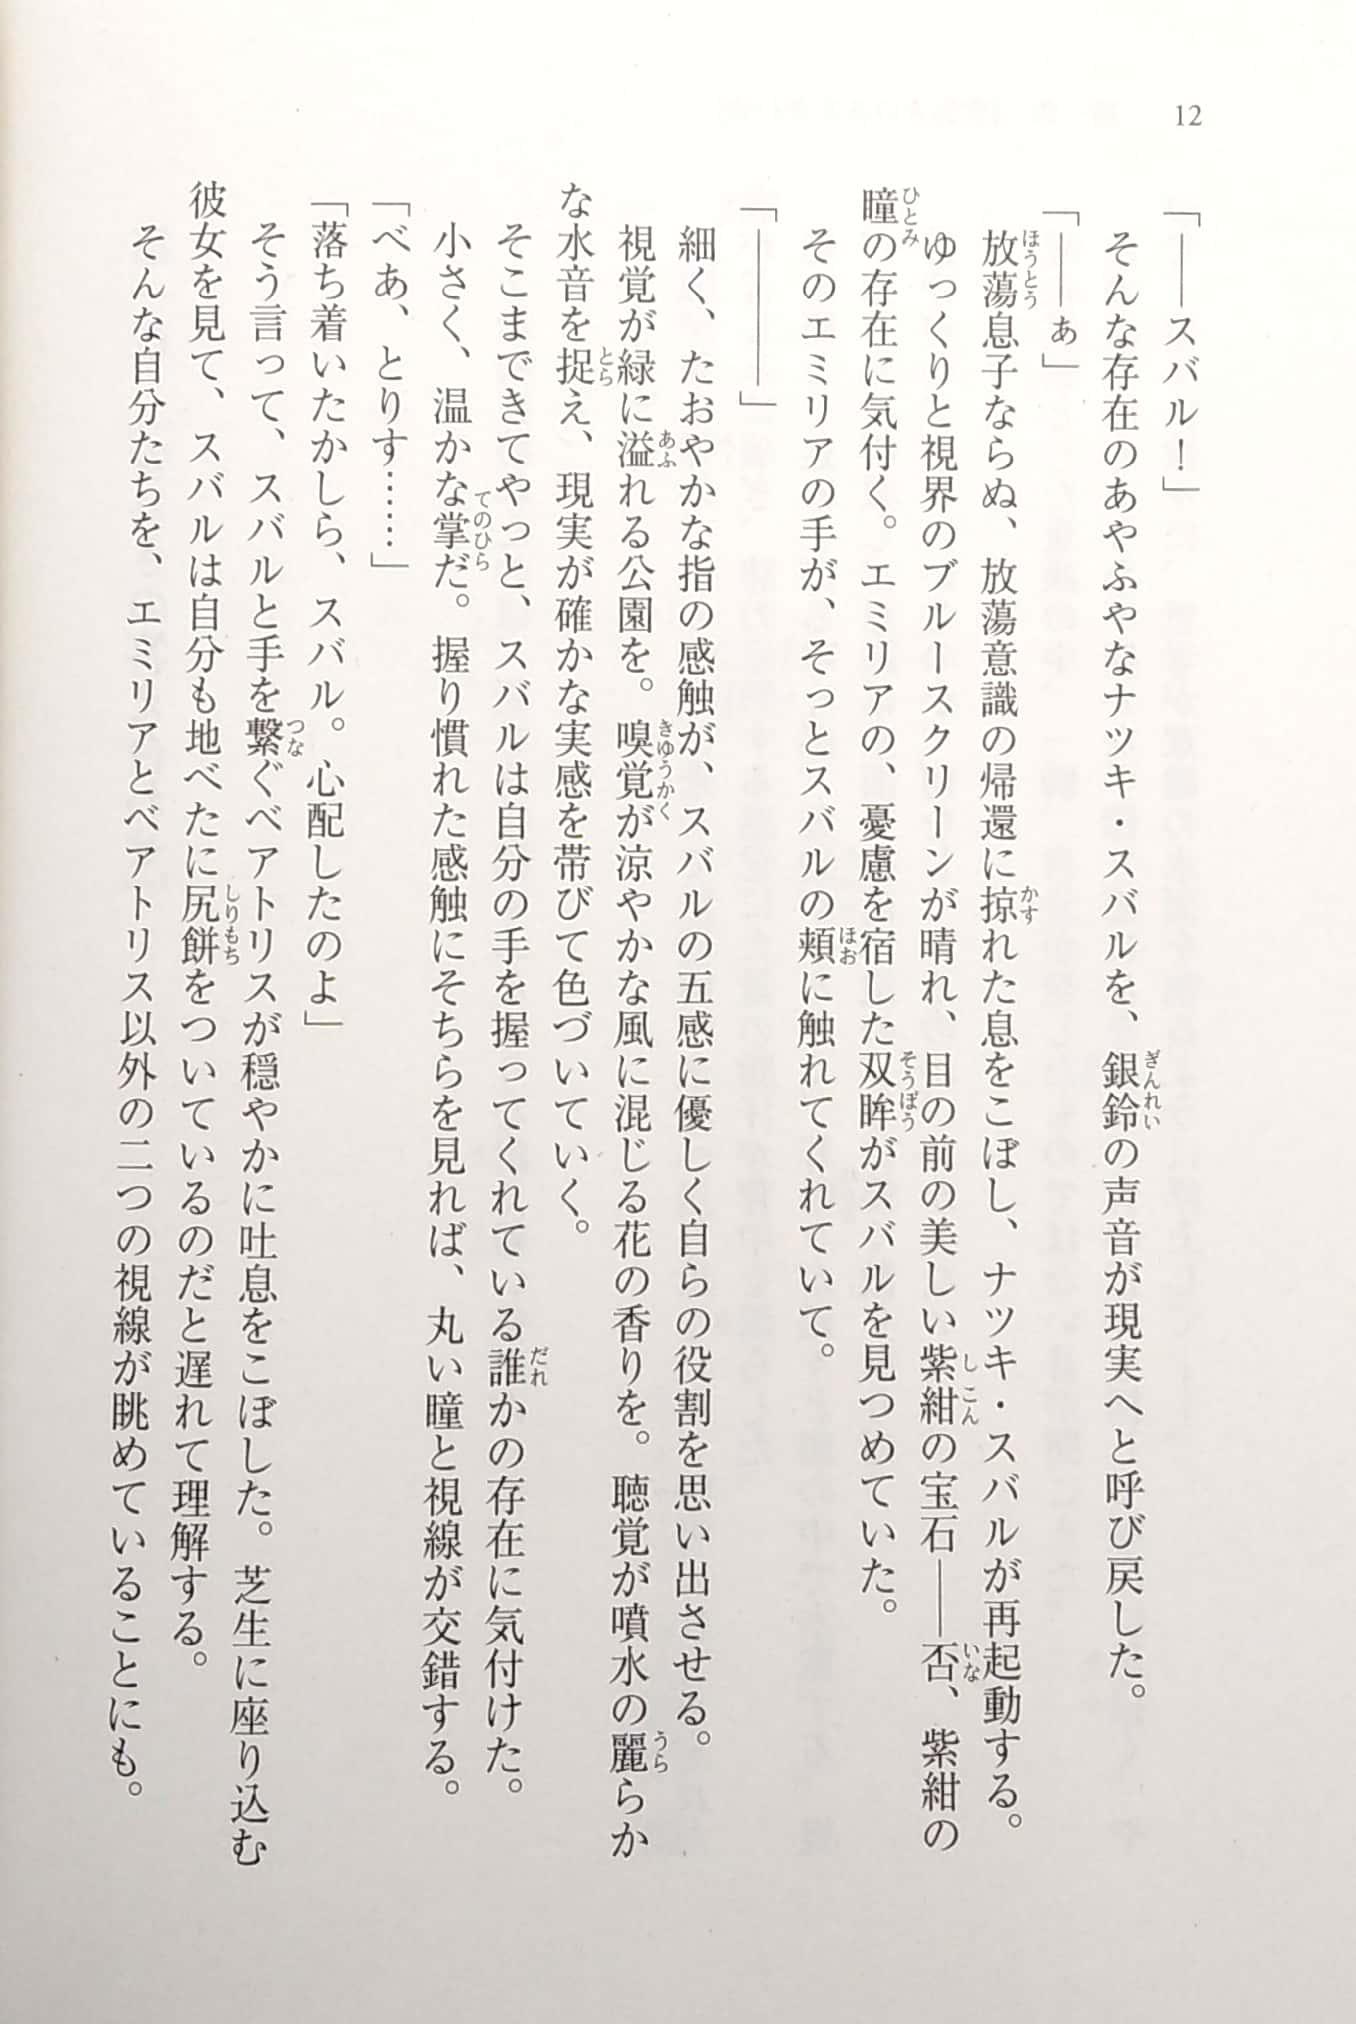 12
「――スバル！」
そんな存在のあやふやなナツキ・スバルを、銀鈴の声音が現実へと呼び戻した。
「――ぁ」
放蕩息子ならぬ、放蕩意識の帰還に掠れた息をこぼし、ナツキ・スバルが再起動する。
ゆっくりと視界のブルースクリーンが晴れ、目の前の美しい紫紺の宝石――否、紫紺の
瞳の存在に気付く。エミリアの、憂慮を宿した双眸がスバルを見つめていた。
そのエミリアの手が、そっとスバルの頬に触れてくれていて。
「――――」
細く、たおやかな指の感触が、スバルの五感に優しく自らの役割を思い出させる。
視覚が緑に溢れる公園を。嗅覚が涼やかな風に混じる花の香りを。聴覚が噴水の麗らか
な水音を捉え、現実が確かな実感を帯びて色づいていく。
そこまできてやっと、スバルは自分の手を握ってくれている誰かの存在に気付けた。
小さく、温かな掌だ。握り慣れた感触にそちらを見れば、丸い瞳と視線が交錯する。
「べあ、とりす……」
「落ち着いたかしら、スバル。心配したのよ」
そう言って、スバルと手を繋ぐベアトリスが穏やかに吐息をこぼした。芝生に座り込む
彼女を見て、スバルは自分も地べたに尻餅をついているのだと遅れて理解する。
そんな自分たちを、エミリアとベアトリス以外の二つの視線が眺めていることにも。